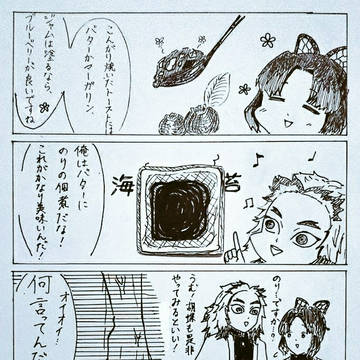 こんがり焼いたトーストには
バターかマーガリン、
ジャムは塗るなら、
ブルーベリーが良いですね
海苔
俺はバターに
のりの佃煮だな！
これがかなり美味いんだ！
のり…ですか…？
うむ！胡蝶も是非
やってみるといい！
オイオイ…
何言ってんだ